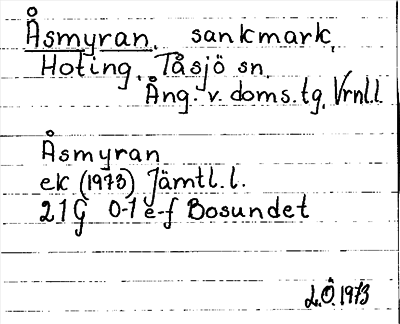 Åsmyran, sankmark,
Hoting, Tåsjö sn.
Ång. v. doms. tg, Vrnl.l.
Åsmyran
ek (1973) Jämtl. l.
21G 0-1 e-f Bosundet
L.Ö. 1973